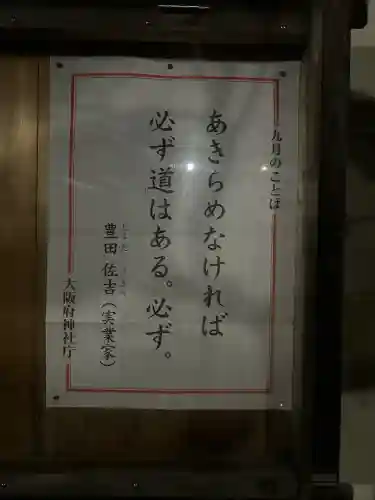 九月のことば
あきらめなければ
必ず道はある。必ず。
豊田佐吉(実業家)
大阪府神社庁